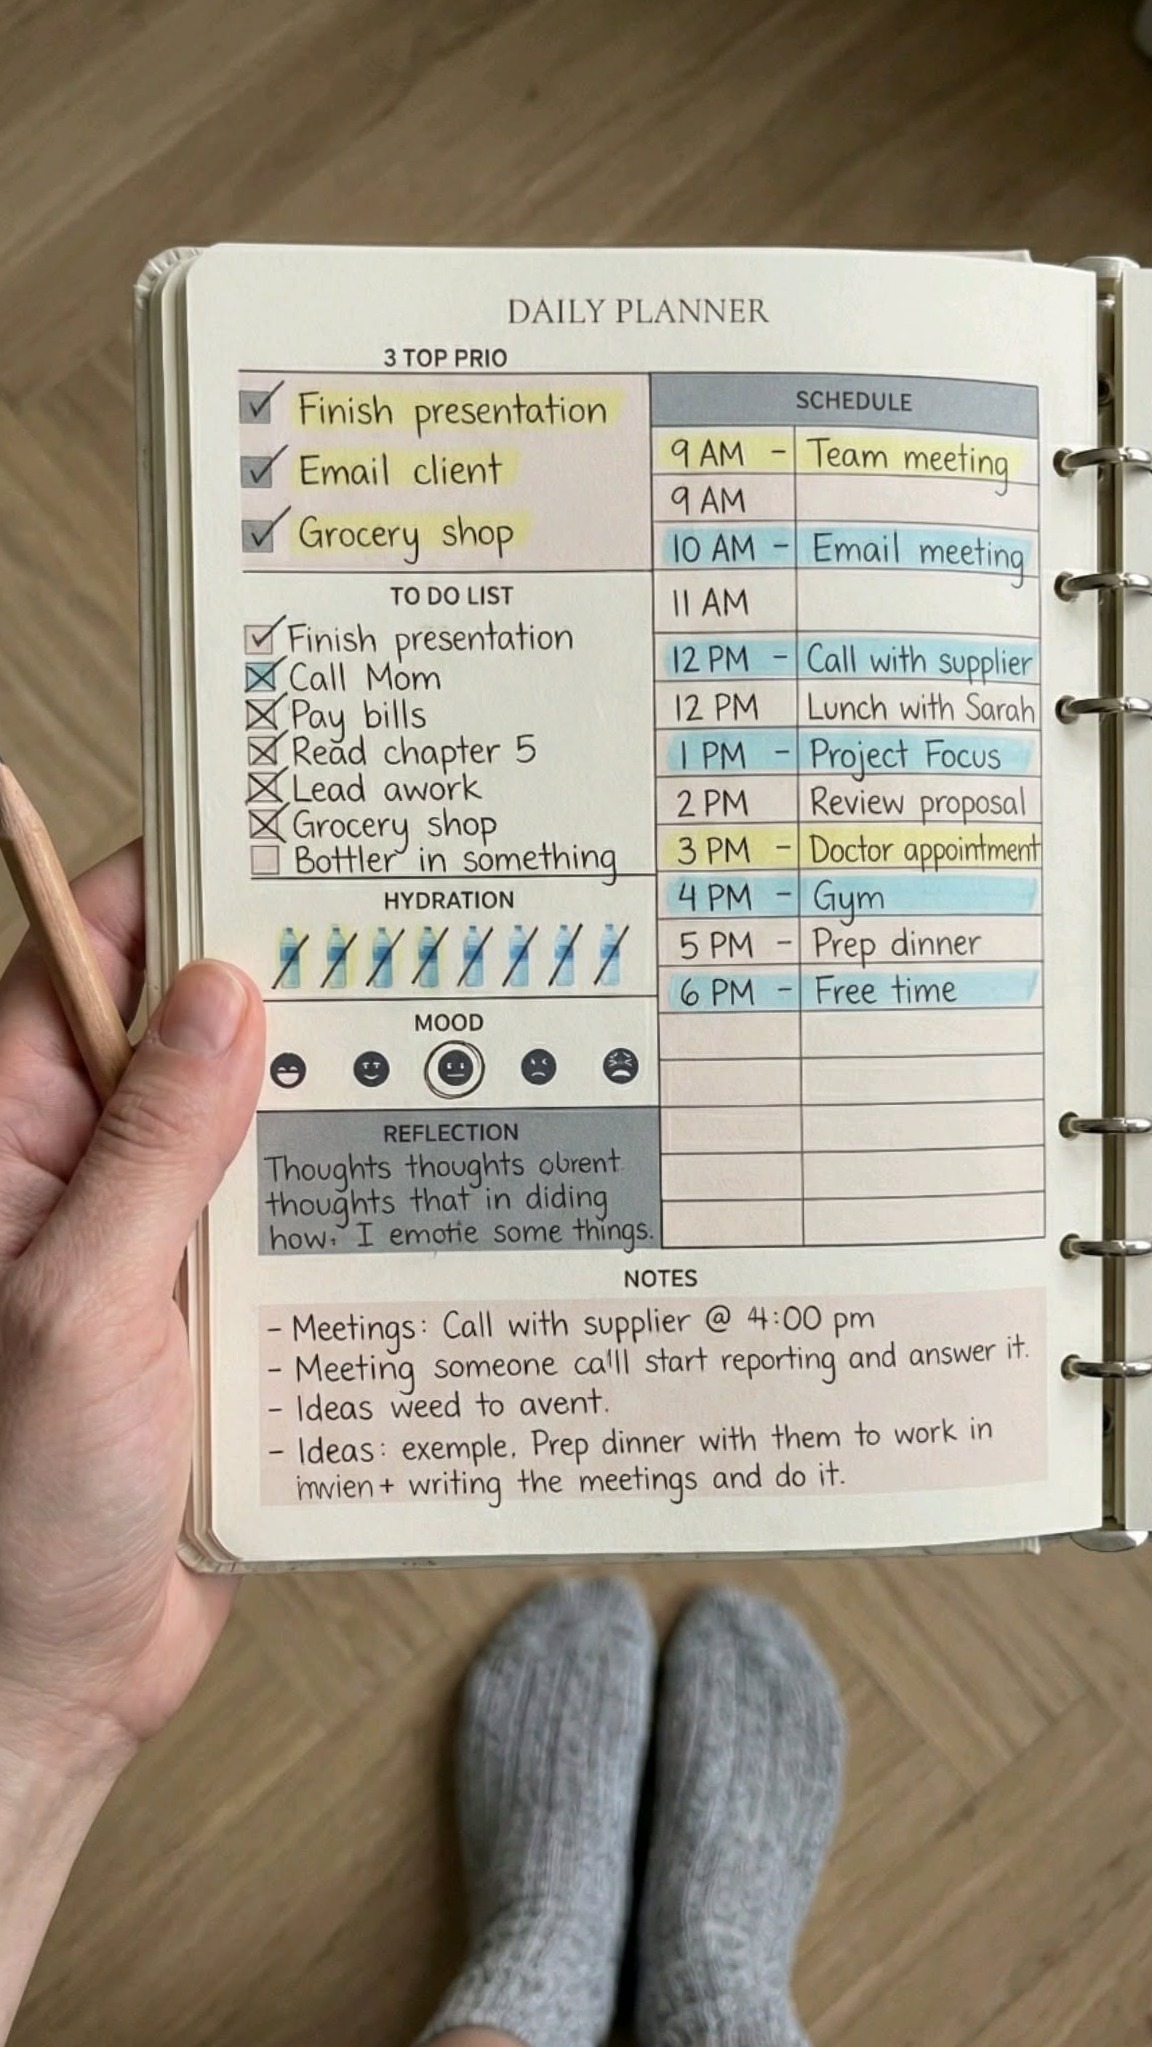 DAILY PLANNER
3 TOP PRIO
Finish presentation
Email client
Grocery shop
TO DO LIST
Finish presentation
Call Mom
Pay bills
Read chapter 5
Lead awork
Grocery shop
Bottler in something
HYDRATION
MOOD
REFLECTION
Thoughts thoughts obrent
thoughts that in diding
how. I emotie some things.
SCHEDULE
9 AM - Team meeting
9 AM
10 AM - Email meeting
11 AM
12 PM - Call with supplier
12 PM Lunch with Sarah
1 PM - Project Focus
2 PM Review proposal
3 PM - Doctor appointment
4 PM - Gym
5 PM - Prep dinner
6 PM - Free time
NOTES
- Meetings: Call with supplier @ 4:00 pm
- Meeting someone ca'll start reporting and answer it.
- Ideas weed to avent.
- Ideas: exemple. Prep dinner with them to work in
writing the meetings and do it.